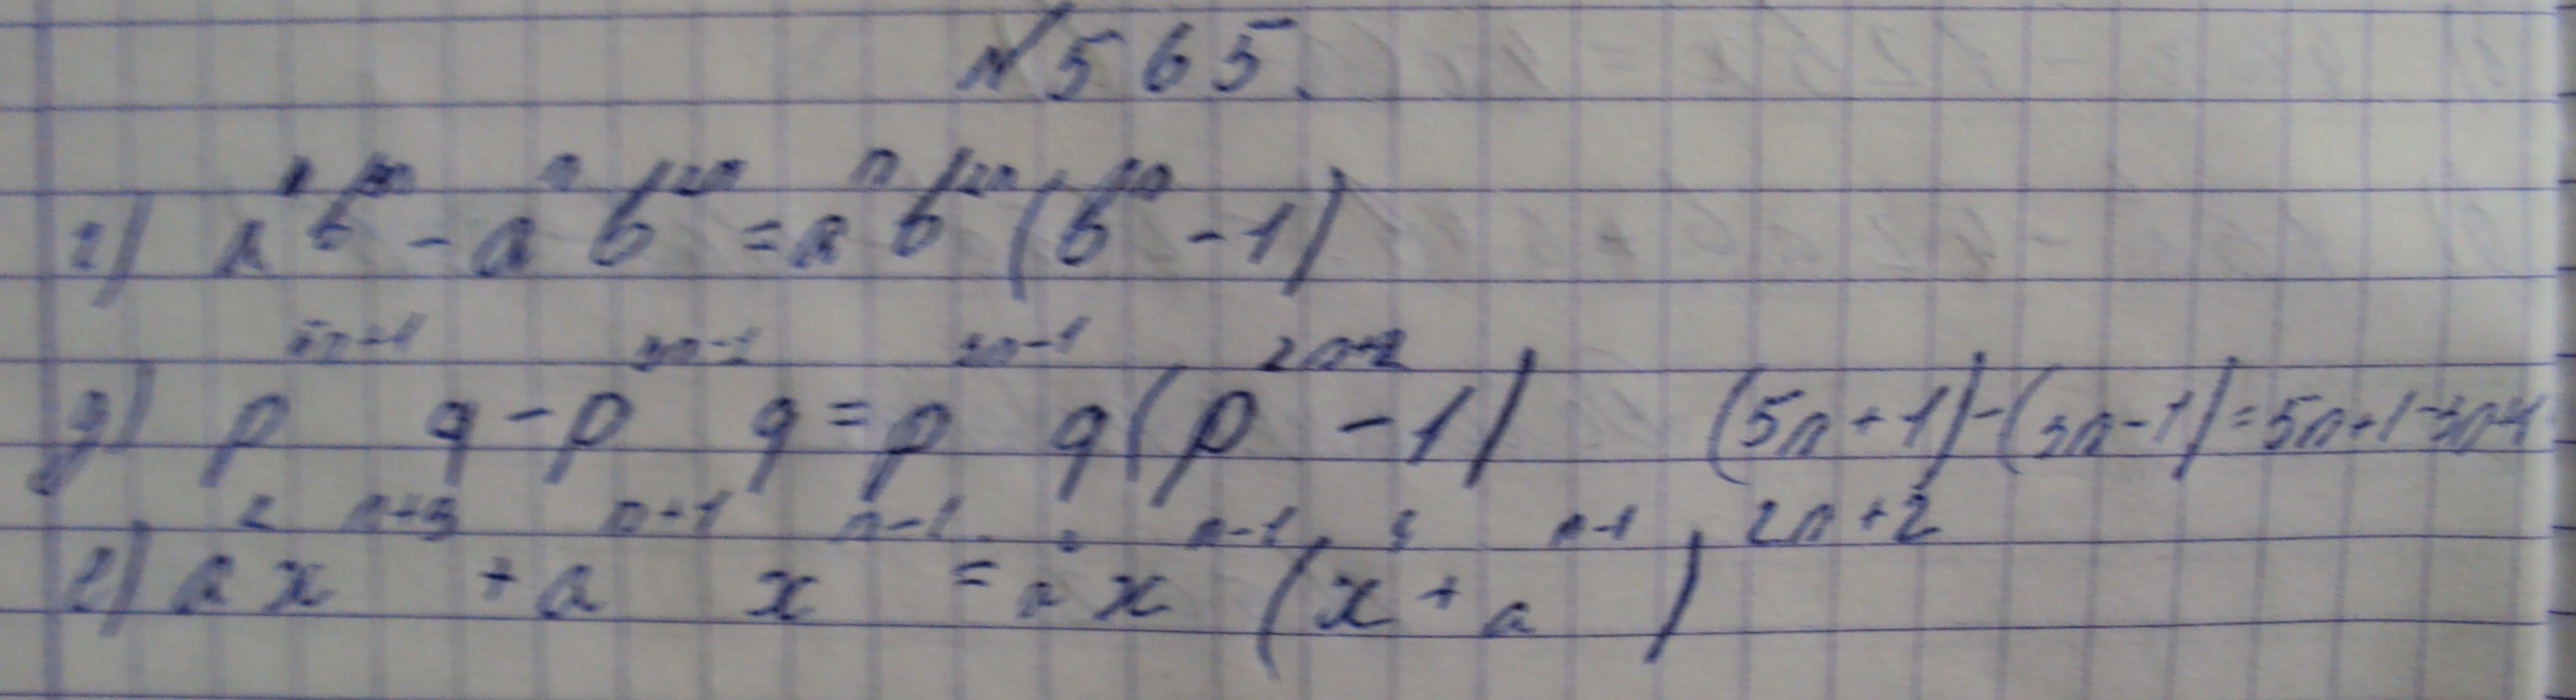 №565.
г) aⁿb³ⁿ - aⁿb²ⁿ = aⁿb²ⁿ(bⁿ - 1)
д) p⁵ⁿ⁺¹q - p³ⁿ⁻¹q = p³ⁿ⁻¹q(p²ⁿ⁺² - 1) (5n+1)-(3n-1)=5n+1-3n+1=
2n+2
е) a²xⁿ⁺³ + aⁿ⁺¹xⁿ⁻¹ = a²xⁿ⁻¹(x⁴ + aⁿ⁻¹)